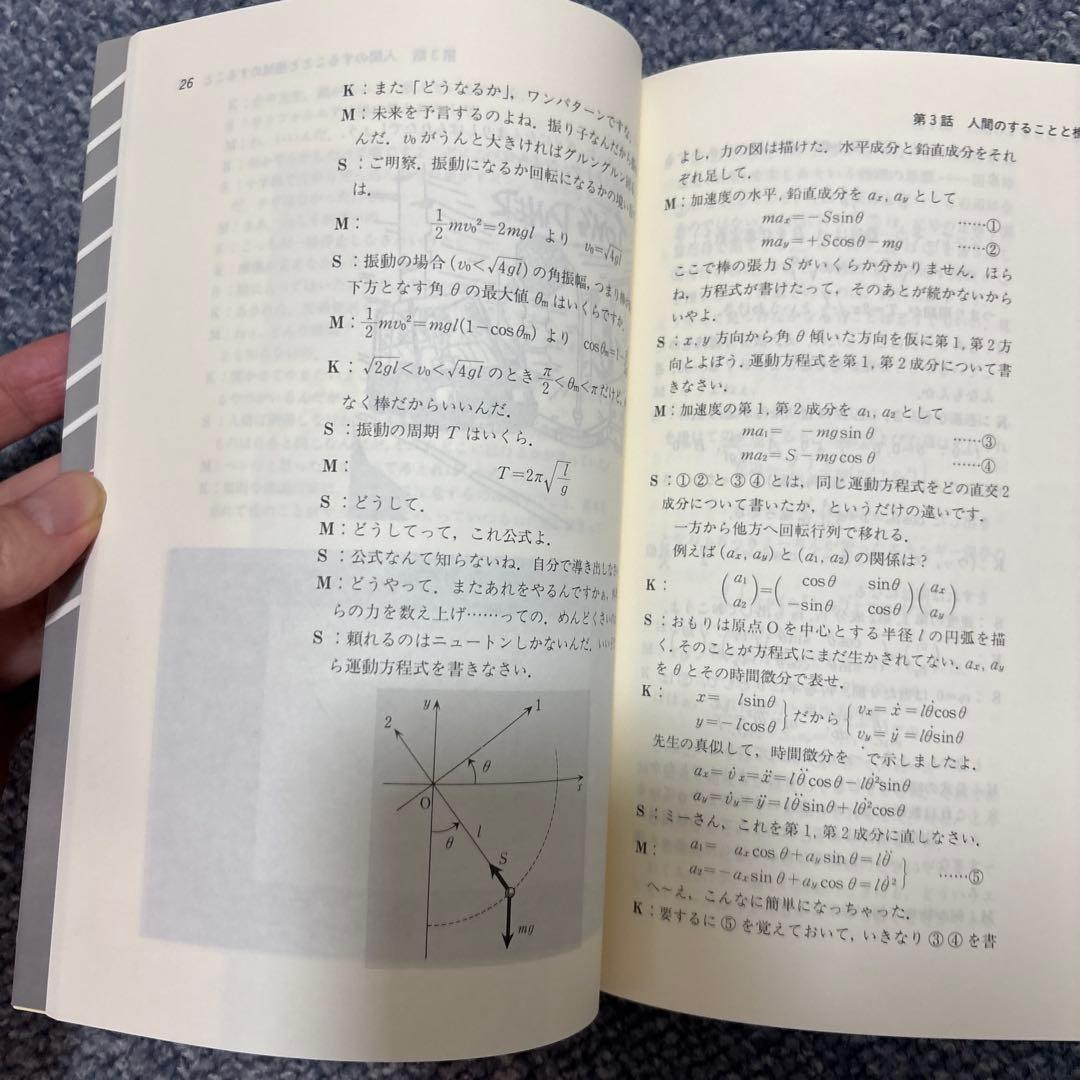 26
K：また「どうなるか」，ワンパターンですな．
M：未来を予言するのよね．振り子なんだから
んだ．v₀がうんと大きければグルングルン
S：ご明察．振動になるか回転になるかの境い
は．
M： 1/2 mv₀²=2mgl より v₀=√4gl
S：振動の場合(v₀<√4gl)の角振幅，つまり
下方となす角θの最大値θmはいくらですか．
M：1/2 mv₀²=mgl(1−cosθm) より cosθm=1−
K：√2gl<v₀<√4gl のとき π/2<θm<π だけど，
なく棒だからいいんだ．
S：振動の周期 T はいくら．
M： T=2π√l/g
S：どうして．
M：どうしてって，これ公式よ．
S：公式なんて知らないね．自分で導き出し
M：どうやって．またあれをやるんですかぁ，
らの力を数え上げ……っての．めんどくさい
S：頼れるのはニュートンしかないんだ．
ら運動方程式を書きなさい．
y
1
2
θ
x
O
l
θ
S
mg
第3話 人間のすることと
よし，力の図は描けた．水平成分と鉛直成分をそれ
ぞれ足して．
M：加速度の水平，鉛直成分を ax, ay として
max=−Ssinθ ……①
may=+Scosθ−mg ……②
ここで棒の張力 S がいくらか分かりません．ほら
ね，方程式が書けたって，そのあとが続かないから
いやよ．
S：x, y 方向から角 θ 傾いた方向を仮に第1，第2方
向とよぼう．運動方程式を第1，第2成分について書
きなさい．
M：加速度の第1，第2成分を a₁, a₂ として
ma₁= −mgsinθ ……③
ma₂=S−mgcosθ ……④
S：①②と③④とは，同じ運動方程式をどの直交2
成分について書いたか，というだけの違いです．
一方から他方へ回転行列で移れる．
例えば (ax, ay) と (a₁, a₂) の関係は？
K： (a₁ a₂)=(cosθ sinθ −sinθ cosθ)(ax ay)
S：おもりは原点Oを中心とする半径 l の円弧を描
く．そのことが方程式にまだ生かされてない．ax, ay
を θ とその時間微分で表せ．
K： x= lsinθ y=−lcosθ }だから{ vx=ẋ=lθ̇cosθ vy=ẏ=lθ̇sinθ
先生の真似して，時間微分を ˙で示しましたよ．
ax=v̇x=ẍ=lθ̈cosθ−lθ̇²sinθ
ay=v̇y=ÿ=lθ̈sinθ+lθ̇²cosθ
S：ミーさん，これを第1，第2成分に直しなさい．
M： a₁= axcosθ+aysinθ=lθ̈
a₂=−axsinθ+aycosθ=lθ̇² } ……⑤
へ〜え，こんなに簡単になっちゃった．
K：要するに⑤を覚えておいて，いきなり③④を書